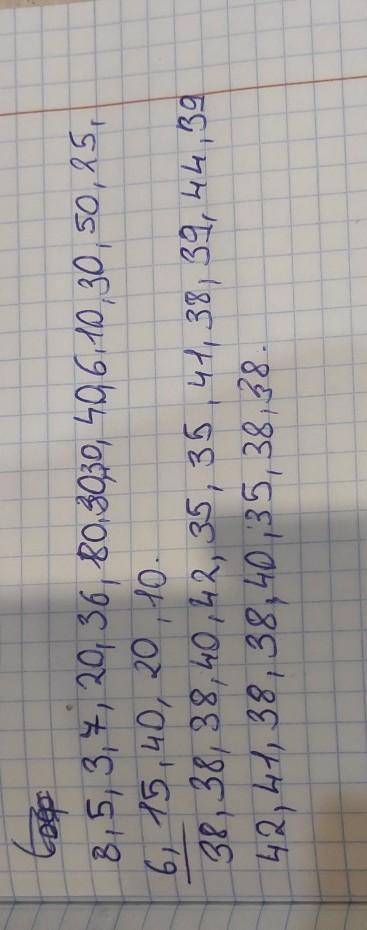 8, 5, 3, 7, 20, 36, 80, 30, 30, 40, 6, 10, 30, 50, 25,
6, 15, 40, 20, 10.
38, 38, 38, 40, 42, 35, 35, 41, 38, 39, 44, 39
42, 41, 38, 38, 40, 35, 38, 38.